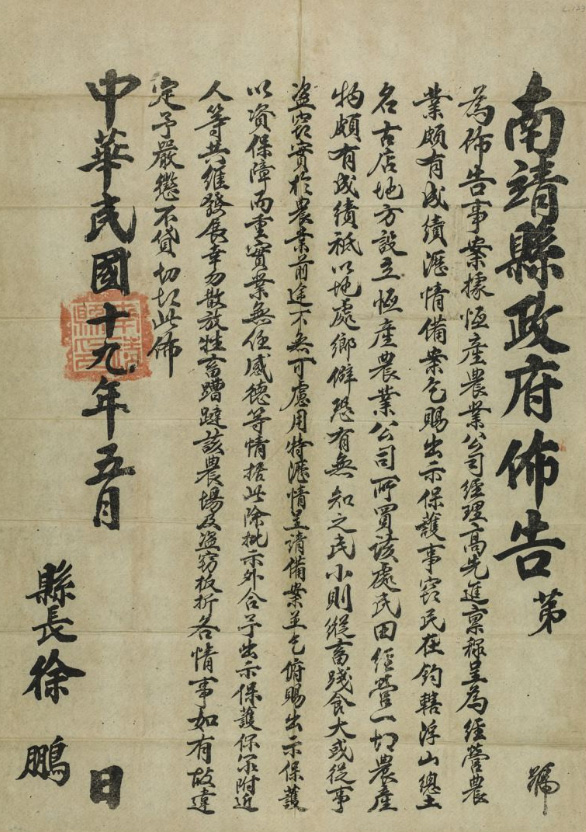 南靖縣政府佈告 第 號
為佈告事案據恒產農業公司經理高先進稟稱呈為經營農
業頗有成績瀝情備案乞賜出示保護事竊民在鈞轄浮山總土
名古店地方設立恒產農業公司所買該處民田經營一切農產
物頗有成績祇以地處鄉僻恐有無知之民小則縱畜踐食大或從事
盜竊實於農業前途不無可慮用特瀝情呈請備案並乞俯賜出示保護
以資保障而重實業無任感德等情據此除批示外合予出示保護仰附近
人等共維發展幸勿散放牲畜蹧蹋該農場及盜竊扳折各情事如有故違
定予嚴懲不貸切切此佈
中華民國十九年五月 日
縣長徐鵬